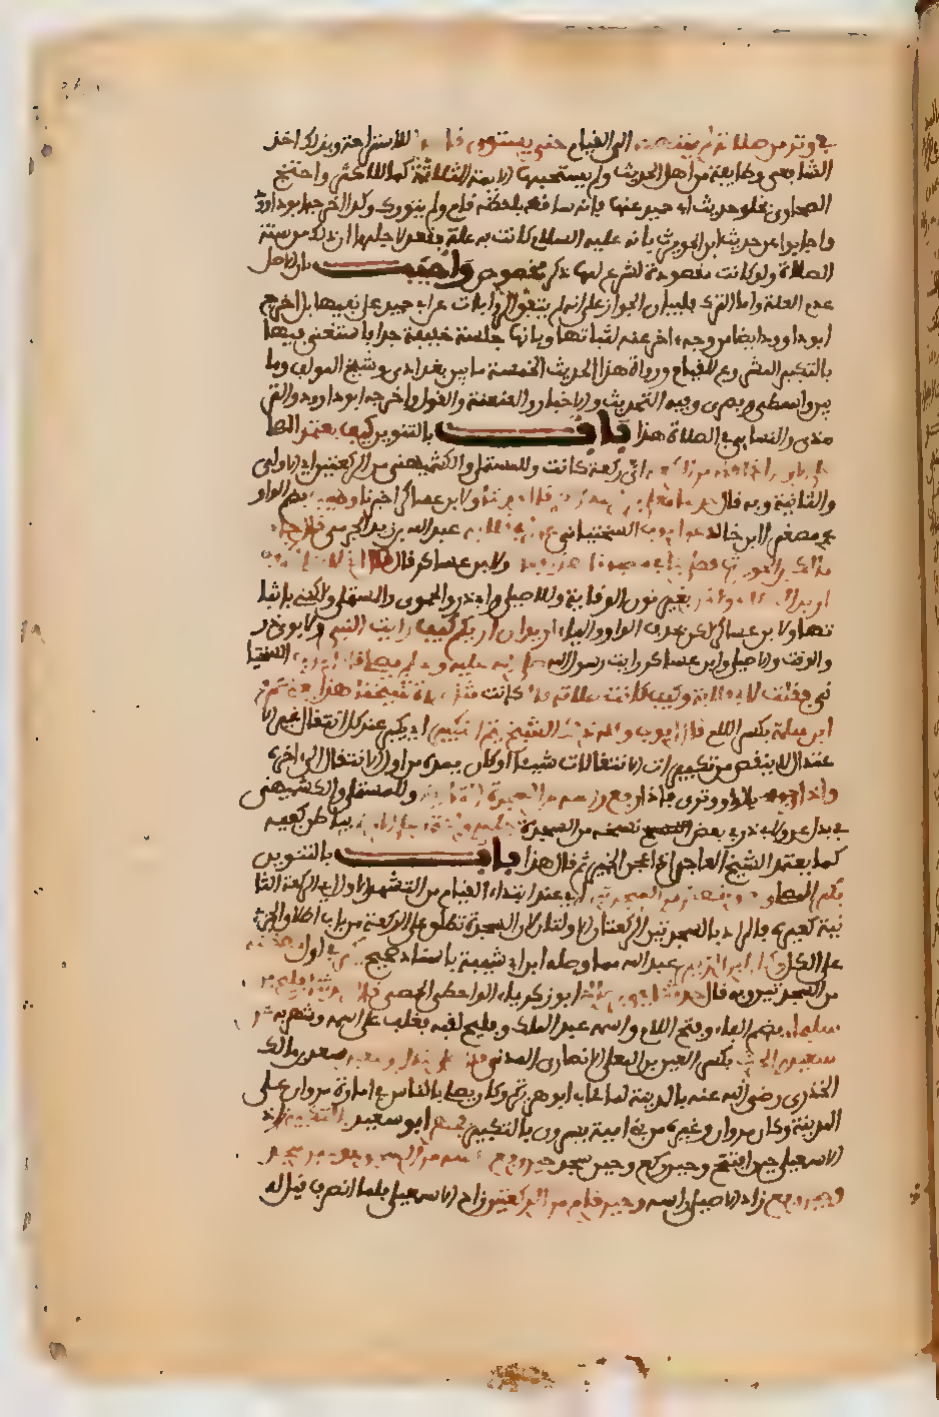 في وتر من صلاته لم ينهض الى القيام حتى يستوي قاعدا للاستراحة وبذلك اخذ
الشافعي وطايفة من اهل الحديث ولم يستحبها الايمة الثلاثة كما للاكثر واحتج
الطحاوي بخلو حديث ابي حميد عنها فانه ساقه بلفظ قام ولم يتورك وكذا اخرجه ابو داود
واجابوا عن حديث ابن الحويرث بانه عليه السلام كانت به علة فقعد لاجلها لا ان ذلك من سنة
الصلاة ولو كانت مقصودة لشرع لها ذكر مخصوص واجيب بان الاصل
عدم العلة واما الترك فلبيان الجواز على انه لم تتفق الروايات عن ابي حميد على نفيها بل اخرج
ابو داود ايضا من وجه اخر عنه اثباتها وبانها جلسة خفيفة جدا فاستغني فيها
بالتكبير المشروع للقيام ورواة هذا الحديث الخمسة ما بين بغدادي وشيخ المولف وما
بين واسطي وبصري وفيه التحديث والاخبار والعنعنة والقول واخرجه ابو داود والتر
مذي والنسايي في الصلاة هذا باب بالتنوين كيف يعتمد المصا
على الارض اذا قام من الركعة اي ركعة كانت وللمستملي والكشميهني من الركعتين اي الاولى
والثانية وبه قال حدثنا معلى بن اسد قال حدثنا ولابن عساكر اخبرنا وهيب بضم الواو
مصغرا ابن خالد عن ايوب السختياني عن ابي قلابة عبد الله بن زيد الجرمي قال جاءنا
مالك بن الحويرث فصلى بنا في مسجدنا هذا فقال ولابن عساكر قال اني لاصلي بكم
اريد الصلاة ولكن اريد بغير نون الوقاية وللاصيلي وابي ذر والحموي والمستملي ولكنني باثبا
تها ولابن عساكر لكن بحذف الواو والياء اريد ان اريكم كيف رايت النبي ولابوي ذر
والوقت والاصيلي وابن عساكر رايت رسول الله صلى الله عليه وسلم يصلي قال ايوب السختيا
ني فقلت لابي قلابة وكيف كانت صلاته قال كانت مثل صلاة شيخنا هذا يعني عمرو
ابن سلمة بكسر اللام قال ايوب وكان ذلك الشيخ يتم التكبير اي يكبر عند كل انتقال غير الا
عتدال لا ينقص من تكبيرات الانتقالات شيئا او كان يمده من اول الانتقال الى اخره
واذا بالواو وتروى فاذا رفع راسه من السجدة الثانية وللمستملي والكشميهني
في بدل عن ولابي ذر في بعض النسخ من السجدة جلس واعتمد على الارض بباطن كفيه
كما يعتمد الشيخ العاجز اذا عجن الخمير ثم قال هذا باب بالتنوين
يكبر المصلي وهو ينهض من السجدتين اي عند ابتداء القيام من التشهد الاول الى الركعة الثا
نية كغيره فالمراد بالسجدتين الركعتان الاولتان لان السجدة تطلق على الركعة من باب اطلاق الجزء
على الكل وكان ابن الزبير عبد الله مما وصله ابن ابي شيبة باسناد صحيح يكبر في اول نهضته
من السجدتين وبه قال حدثنا يحيى بن صالح ابو زكرياء الوحاظي الحمصي قال حدثنا فليح بن
سليمان بضم الفاء وفتح اللام واسمه عبد الملك وفليح لقبه فغلب على اسمه وشهر به عن
سعيد بن الحارث بكسر العين بن المعلى الانصاري المدني قال صلى لنا ابو سعيد سعد بن مالك
الخدري رضي الله عنه بالمدينة لما غاب ابو هريرة وكان يصلي بالناس في امارة مروان على
المدينة وكان مروان وغيره من بني امية يسرون بالتكبير فجهر ابو سعيد بالتكبير زاد
الاسمعيلي حين افتتح وحين ركع وحين سجد حين رفع راسه من السجود وحين سجد
وحين رفع زاد الاصيلي راسه وحين قام من الركعتين زاد الاسمعيلي فلما انصرف قيل له